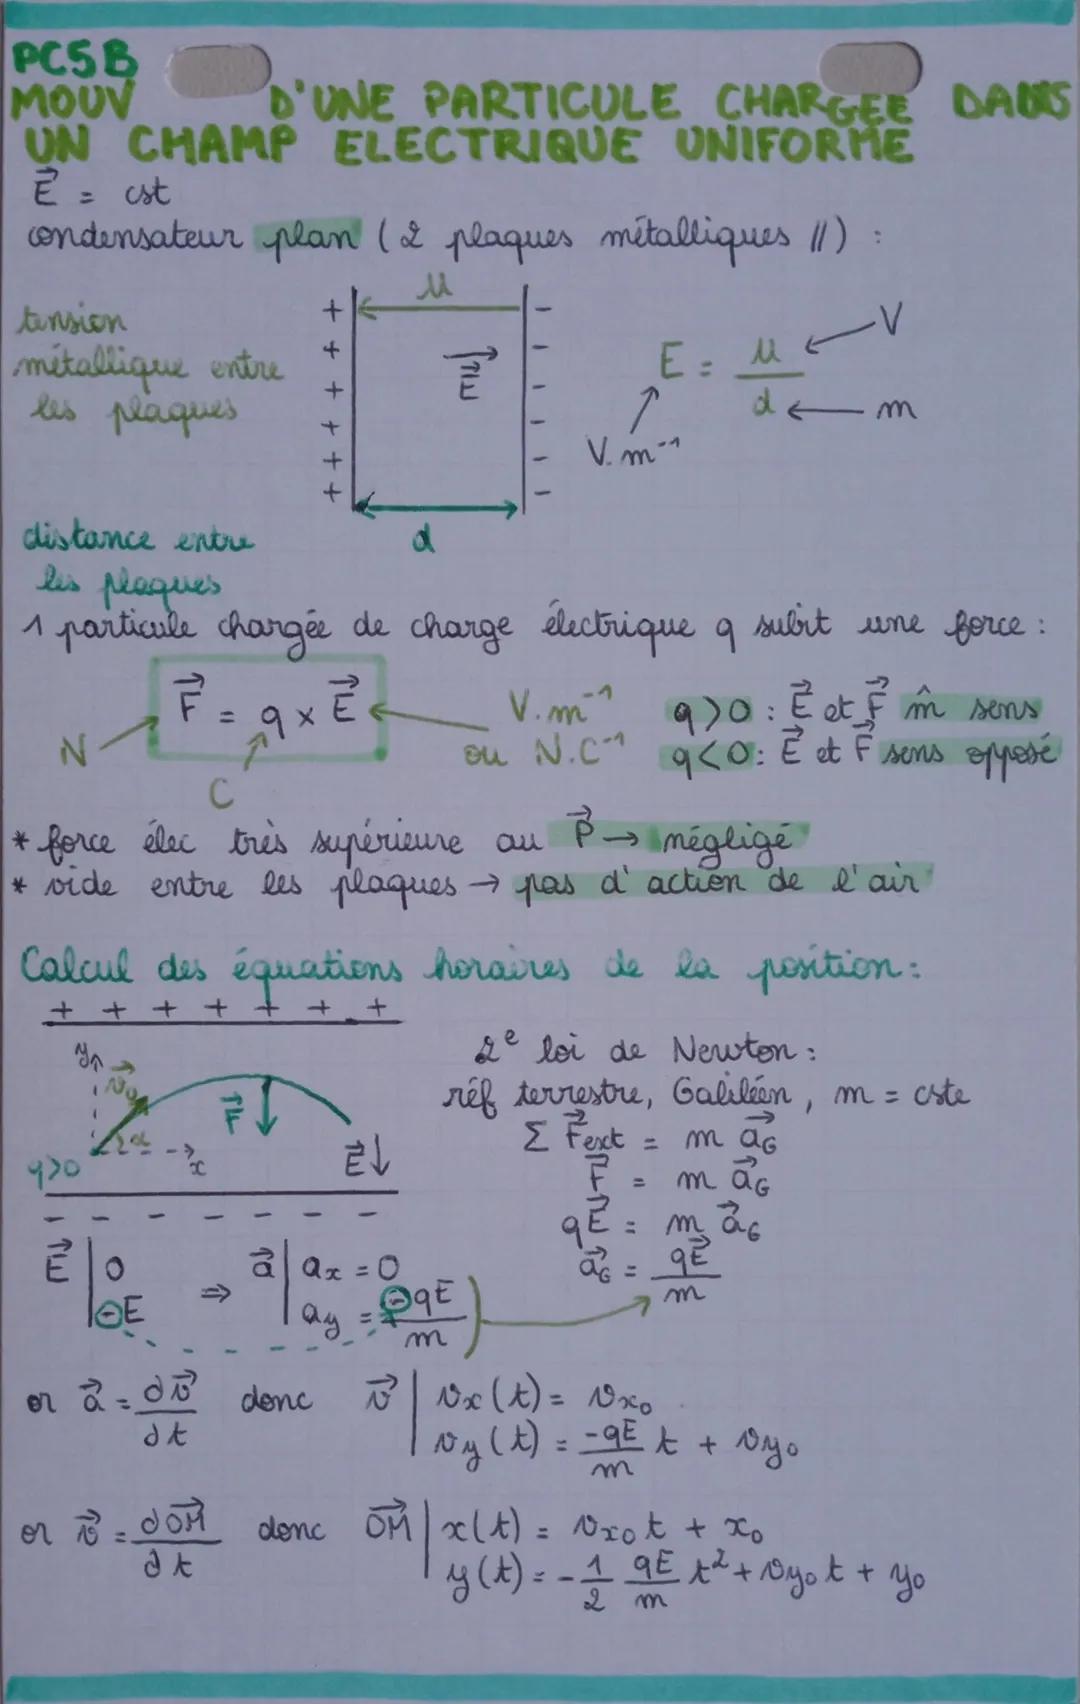 PC5B
MOUV D'UNE PARTICULE CHARGÉE DANS
UN CHAMP ELECTRIQUE UNIFORME
E⃗ = cst
condensateur plan (2 plaques métalliques //) :
u
tension
métallique entre
les plaques
+ + + + + +
E⃗
- - - - - -
E = u/d
V
m
V.m⁻¹
distance entre
les plaques
d
1 particule chargée de charge électrique q subit une force :
F⃗ = q x E⃗
N
C
V.m⁻¹
ou N.C⁻¹
q>0 : E⃗ et F⃗ m̂ sens
q<0 : E⃗ et F⃗ sens opposé
* force élec très supérieure au P⃗ → négligé
* vide entre les plaques → pas d'action de l'air
Calcul des équations horaires de la position :
+ + + + + + +
y
v⃗₀
α
x
q>0
F⃗
E⃗
- - - - - - -
2e loi de Newton :
réf terrestre, Galiléen, m = cste
Σ F⃗ext = m a⃗G
F⃗ = m a⃗G
qE⃗ = m a⃗G
a⃗G = qE⃗/m
E⃗ | 0 ⇒ a⃗ | ax = 0
| -E | ay = -qE/m
or a⃗ = ∂v⃗/∂t donc v⃗ | vx(t) = vx₀
| vy(t) = -qE/m t + vy₀
or v⃗ = ∂OM⃗/∂t donc OM⃗ | x(t) = vx₀t + x₀
| y(t) = -1/2 qE/m t² + vy₀t + y₀